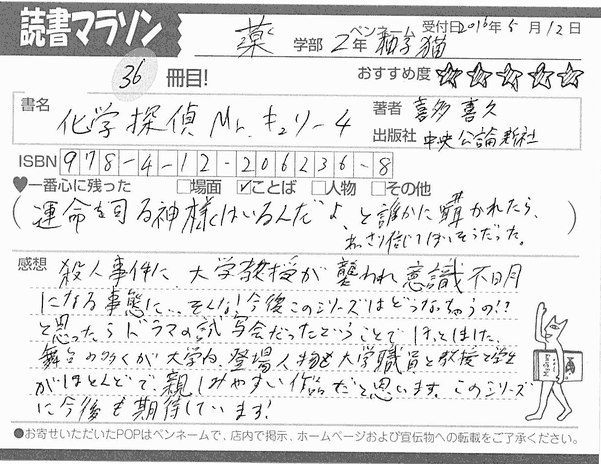 読書マラソン
受付日2016年5月12日
薬 学部 2年 ペンネーム 猫
36 冊目!
おすすめ度 ☆☆☆☆☆
書名 化学探偵Mr.キュリー4
著者 喜多喜久
出版社 中央公論新社
ISBN 978-4-12-206236-8
♥一番心に残った □場面 ☑ことば □人物 □その他
(運命を司る神様はいるんだよ、と誰かに囁かれたら、
あっさり信じてしまいそうだった。)
感想 殺人事件に、大学教授が襲われ意識不明
になる事態に…そんな!今後このシリーズはどうなっちゃうの!?
と思ったらドラマの試写会だったということでほっとしました。
舞台の多くが大学内、登場人物も大学職員と教授と学生
がほとんどで親しみやすい作品だと思います。このシリーズ
に今後も期待しています!
●お寄せいただいたPOPはペンネームで、店内で掲示、ホームページおよび宣伝物への転載をご了承ください。